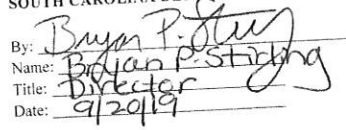 SOUTH CAROLINA
By: Bryan P. Stirling
Name: Bryan P. Stirling
Title: Director
Date: 9/20/19